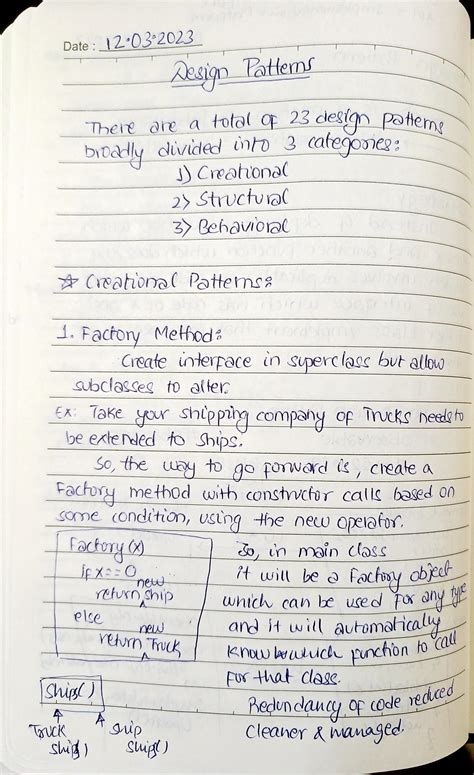 Date : 12.03.2023
Design Patterns
There are a total of 23 design patterns
broadly divided into 3 categories:
1) Creational
2) Structural
3) Behavioral
☆ Creational Patterns:
1. Factory Method:
Create interface in superclass but allow
subclasses to alter.
Ex: Take your shipping company of Trucks needs to
be extended to ships.
So, the way to go forward is, create a
Factory method with constructor calls based on
some condition, using the new operator.
Factory(x)
if x==0
return new ship
else
return new Truck
So, in main class
it will be a factory object
which can be used for any type
and it will automatically
know which function to call
for that class.
Redundancy of code reduced
Cleaner & managed.
Ship()
Truck
Ship()
Ship
Ship()